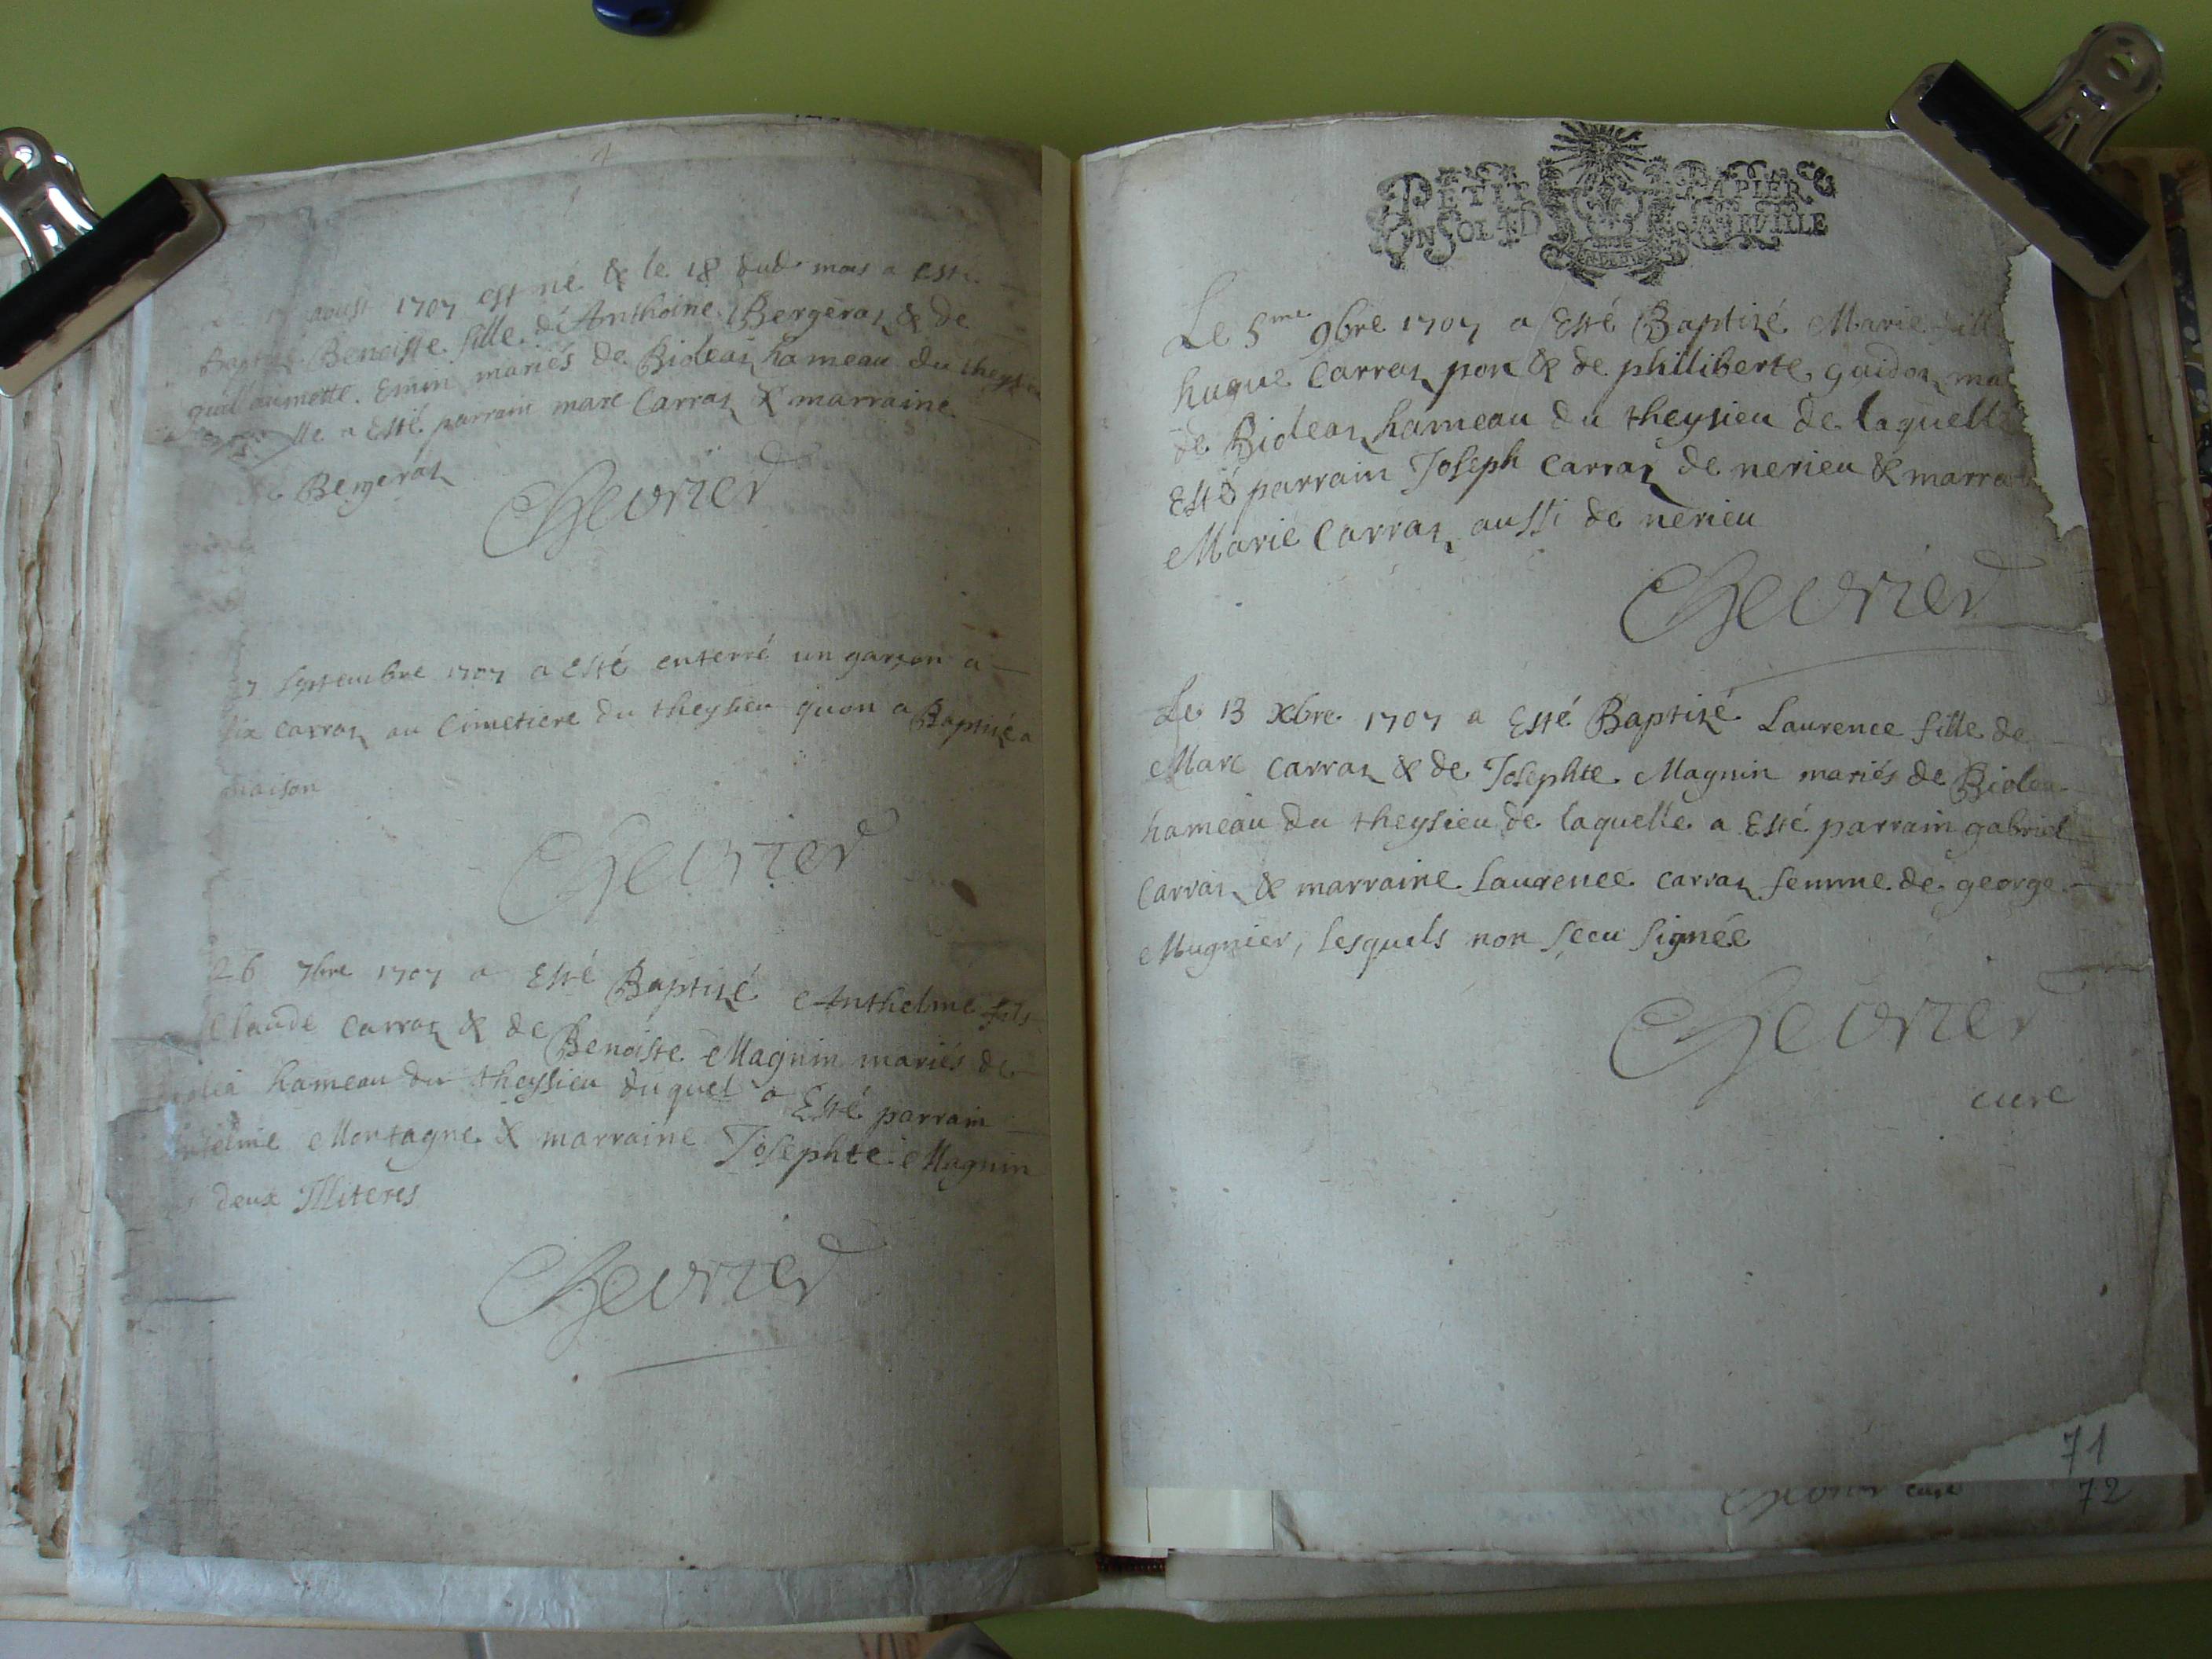 aoust 1707 est né & le 18 dud mois a esté
Baptisé Benoiste fille d'Anthoine Bergeraz & de
guillaumette Emin mariés de Bioleaz hameau du theysieu
de laquelle a Esté parrain marc Carraz & marraine
Bergeraz
Chevrier
7 Septembre 1707 a Esté enterré un garçon a
Carraz au Cimetiere du theysieu quon a Baptisé a
maison
Chevrier
26 7bre 1707 a Esté Baptizé Anthelme fils
Claude Carraz & de Benoiste Magnin mariés de
hameau du theysieu duquel a Esté parrain
Anthelme Montagne & marraine Josephte Magnin
deux Illiteres
Chevrier
PETIT PAPIER
UN SOL 4 D LA FEVILLE
Le 5me 9bre 1707 a Esté Baptizé Marie fille
hugue Carraz pon & de philiberte guidoz ma
de Bioleaz hameau du theysieu de laquelle
Esté parrain Joseph Carraz de nerieu & marra
Marie Carraz aussi de nerieu
Chevrier
Le 13 Xbre 1707 a Esté Baptizé Laurence fille de
Marc Carraz & de Josephte Magnin mariés de Biolea
hameau du theysieu de laquelle a Esté parrain gabriel
Carraz & marraine Laurence Carraz femme de george
Mugnier, lesquels non sceu signée
Chevrier
curé
71
Chevrier curé
72